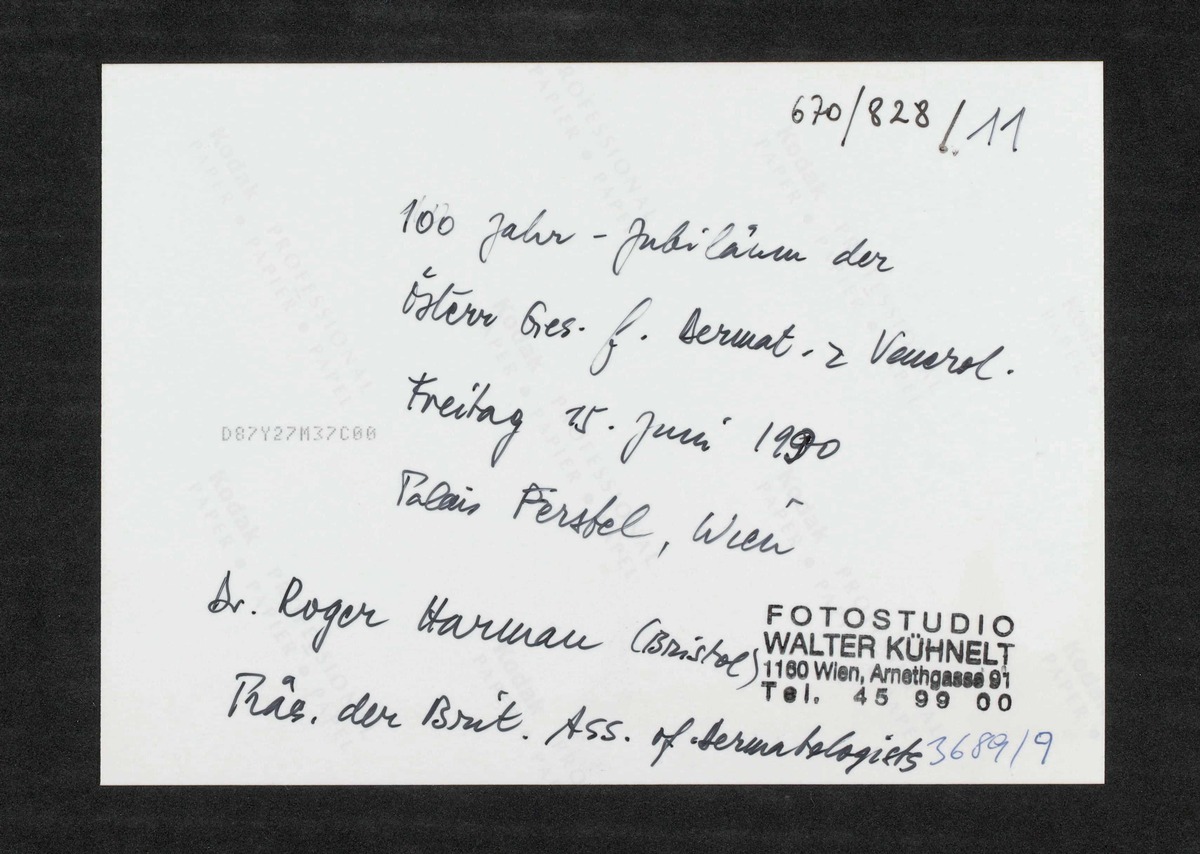 670/828/11
100 Jahr-Jubiläum der
Österr Ges. f. Dermat. Venerol.
Freitag 15. Juni 1990
D87Y27M37C00
Palais Ferstel, Wien
Dr. Roger Harman (Bristol)
FOTOSTUDIO
WALTER KÜHNELT
1160 Wien, Arnethgasse 91
Tel. 45 99 00
Präs. der Brit. Ass. of Dermatologists
3689/9